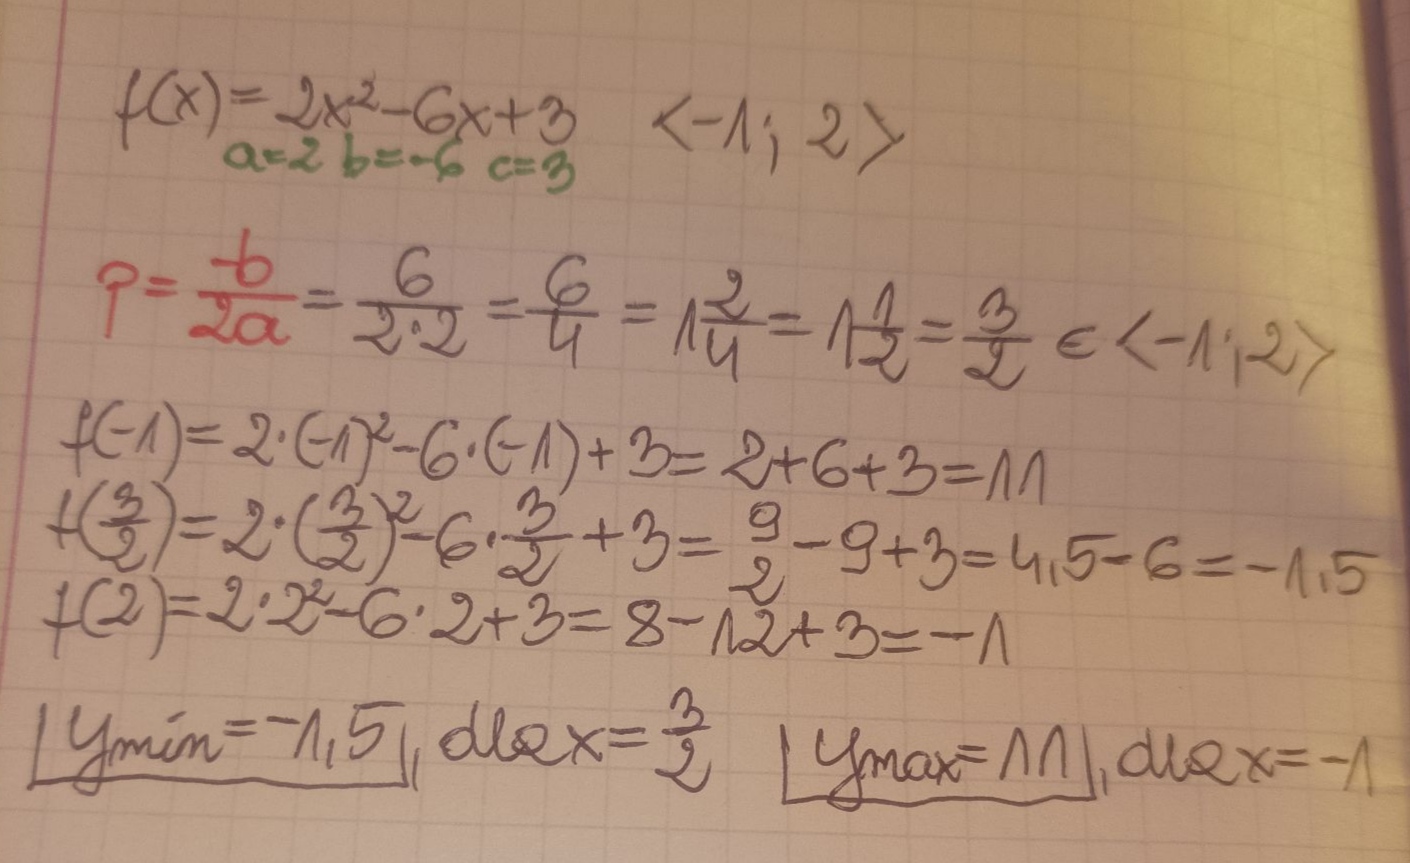 f(x) = 2x² - 6x + 3 <-1; 2>
a=2 b=-6 c=3
p = -b/2a = 6/2·2 = 6/4 = 1 2/4 = 1 1/2 = 3/2 ∈ <-1; 2>
f(-1) = 2·(-1)² - 6·(-1) + 3 = 2+6+3 = 11
f(3/2) = 2·(3/2)² - 6·3/2 + 3 = 9/2 - 9 + 3 = 4,5 - 6 = -1,5
f(2) = 2·2² - 6·2 + 3 = 8 - 12 + 3 = -1
ymin = -1,5, dla x = 3/2 ymax = 11, dla x = -1